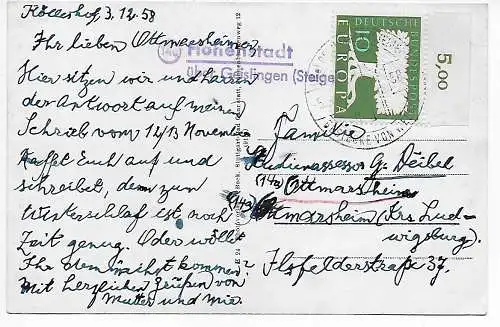 Köllershof, 3.12.58
Ihr lieben Ottmarsheimer!
Hier sitzen wir und harren
der Antwort auf meinen
Schrieb vom 12/13 November
Raffet Euch auf und
schreibet, denn zum
Winterschlaf ist noch
Zeit genug. Oder wollet
Ihr demnächst kommen?
Mit herzlichen Grüßen von
Mutter und mir.
Hohenstadt
über Geislingen (Steige)
DEUTSCHE
BUNDESPOST
10
EUROPA
5,00
Familie
Studienassessor G. Deibel
(14a) Ottmarsheim
(14a)
Ottmarsheim (Krs Lud-
wigsburg)
Ilsfelderstraße 37.